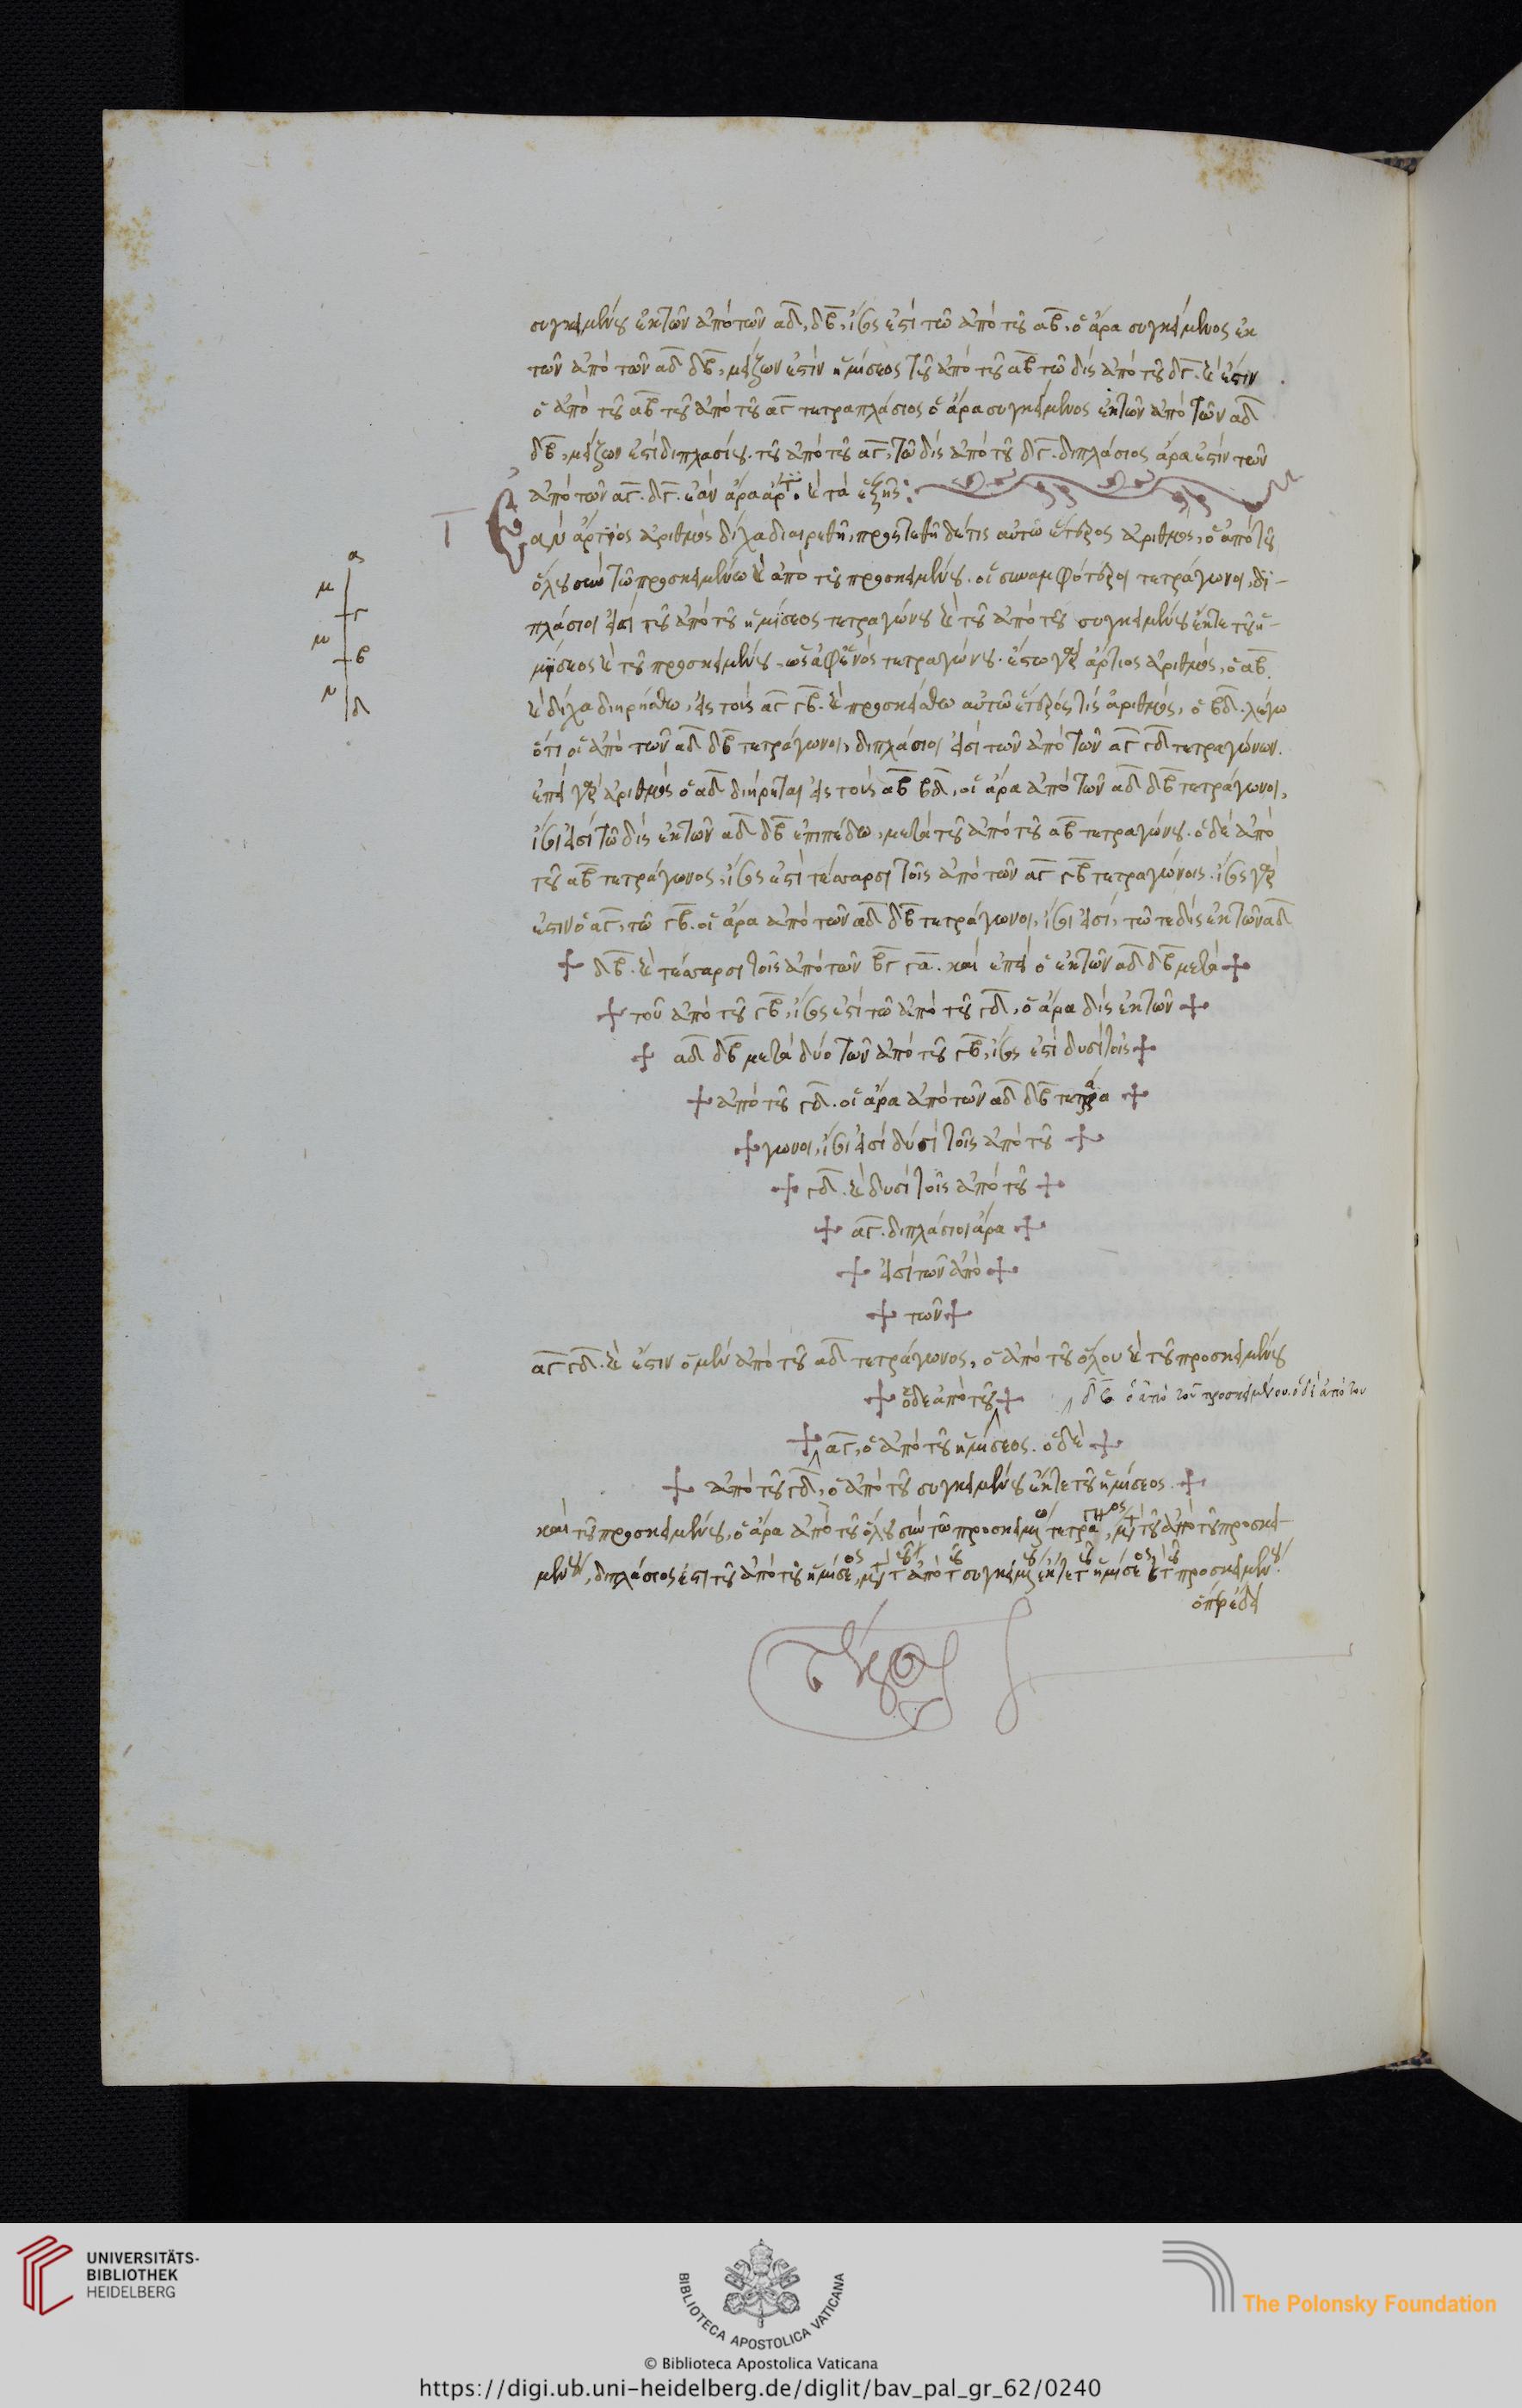 συγκειμένου ἐκ τῶν ἀπὸ τῶν αδ, δβ, ἴσος ἐστὶ τῶ ἀπὸ τοῦ αβ, ὁ ἄρα συγκείμενος ἐκ
τῶν ἀπὸ τῶν αδ δβ, μείζων ἐστὶν ἡμίσεος τοῦ ἀπὸ τοῦ αβ τῶ δὶς ἀπὸ τοῦ δγ. καὶ ἐστιν
ὁ ἀπὸ τοῦ αβ τοῦ ἀπὸ τοῦ αγ τετραπλάσιος ὁ ἄρα συγκείμενος ἐκ τῶν ἀπὸ τῶν αδ
δβ, μείζων ἐστὶ διπλασίου. τοῦ ἀπὸ τοῦ αγ, τῶ δὶς ἀπὸ τοῦ δγ. διπλάσιος ἄρα ἐστὶν τῶν
ἀπὸ τῶν αγ. δγ. ἐὰν ἄρα ἄρτιο καὶ τὰ ἑξῆς:
Ι Ἐὰν ἄρτιος ἀριθμὸς δίχα διαιρεθῆ, προστεθῆ δέ τις αὐτῶ ἕτερος ἀριθμὸς, ὁ ἀπὸ τοῦ
ὅλου σὺν τῶ προσκειμένω καὶ ἀπὸ τοῦ προσκειμένου. οἱ συναμφότεροι τετράγωνοι, δι-
πλάσιοι εἰσὶ τοῦ ἀπὸ τοῦ ἡμίσεος τετραγώνου καὶ τοῦ ἀπὸ τοῦ συγκειμένου ἔκ τε τοῦ ἡ-
μίσεος καὶ τοῦ προσκειμένου, ὡς ἀφ' ἑνὸς τετραγώνου. ἔστω γὰρ ἄρτιος ἀριθμὸς, ὁ αβ.
καὶ δίχα διηρήσθω, εἰς τοὺς αγ γβ. καὶ προσκείσθω αὐτῶ ἕτερός τις ἀριθμὸς, ὁ βδ. λέγω
ὅτι οἱ ἀπὸ τῶν αδ δβ τετράγωνοι, διπλάσιοι εἰσὶ τῶν ἀπὸ τῶν αγ γδ τετραγώνων.
ἐπεὶ γὰρ ἀριθμὸς ὁ αδ διήρηται εἰς τοὺς αβ βδ, οἱ ἄρα ἀπὸ τῶν αδ δβ τετράγωνοι,
ἴσοι εἰσὶ τῶ δὶς ἐκ τῶν αδ δβ ἐπιπέδω, μετὰ τοῦ ἀπὸ τοῦ αβ τετραγώνου. ὁ δὲ ἀπὸ
τοῦ αβ τετράγωνος, ἴσος ἐστὶ τέσσαρσι τοῖς ἀπὸ τῶν αγ γβ τετραγώνοις. ἴσος γὰρ
ἐστιν ὁ αγ, τῶ γβ. οἱ ἄρα ἀπὸ τῶν αδ δβ τετράγωνοι, ἴσοι εἰσὶ, τῶ τε δὶς ἐκ τῶν αδ
δβ. καὶ τέσσαρσι τοῖς ἀπὸ τῶν βγ γα. καὶ ἐπεὶ ὁ ἐκ τῶν αδ δβ μετὰ
τοῦ ἀπὸ τοῦ γβ, ἴσος ἐστὶ τῶ ἀπὸ τοῦ γδ, ὁ ἅμα δὶς ἐκ τῶν
αδ δβ μετὰ δύο τῶν ἀπὸ τοῦ γβ, ἴσος ἐστὶ δυσὶ τοῖς
ἀπὸ τοῦ γδ. οἱ ἄρα ἀπὸ τῶν αδ δβ τετρά
γωνοι, ἴσοι εἰσὶ δυσὶ τοῖς ἀπὸ τοῦ
γδ. καὶ δυσὶ τοῖς ἀπὸ τοῦ
αγ. διπλάσιοι ἄρα
εἰσὶ τῶν ἀπὸ
τῶν
αγ γδ. καὶ ἔστιν ὁ μὲν ἀπὸ τοῦ αδ τετράγωνος, ὁ ἀπὸ τοῦ ὅλου καὶ τοῦ προσκειμένου
ὁ δὲ ἀπὸ τοῦ δβ ὁ ἀπὸ τοῦ προσκειμένου. ὁ δὲ ἀπὸ του
αγ, ὁ ἀπὸ τοῦ ἡμίσεος. ὁ δὲ
ἀπὸ τοῦ γδ, ὁ ἀπὸ τοῦ συγκειμένου ἔκ τε τοῦ ἡμίσεος.
καὶ τοῦ προσκειμένου, ὁ ἄρα ἀπὸ τοῦ ὅλου σὺν τῶ προσκειμένω τετράγωνος, μετὰ τοῦ ἀπὸ τοῦ προσκει-
μένου, διπλάσιος ἐστι τοῦ ἀπὸ τοῦ ἡμίσεος, μετὰ τοῦ ἀπὸ τοῦ συγκειμένου ἔκ τε τοῦ ἡμίσεος καὶ τοῦ προσκειμένου.
ὅπερ ἔδει
τέλος
α
μ
γ
μ
β
ν
δ
UNIVERSITÄTS-
BIBLIOTHEK
HEIDELBERG
BIBLIOTECA APOSTOLICA VATICANA
© Biblioteca Apostolica Vaticana
The Polonsky Foundation
https://digi.ub.uni-heidelberg.de/diglit/bav_pal_gr_62/0240